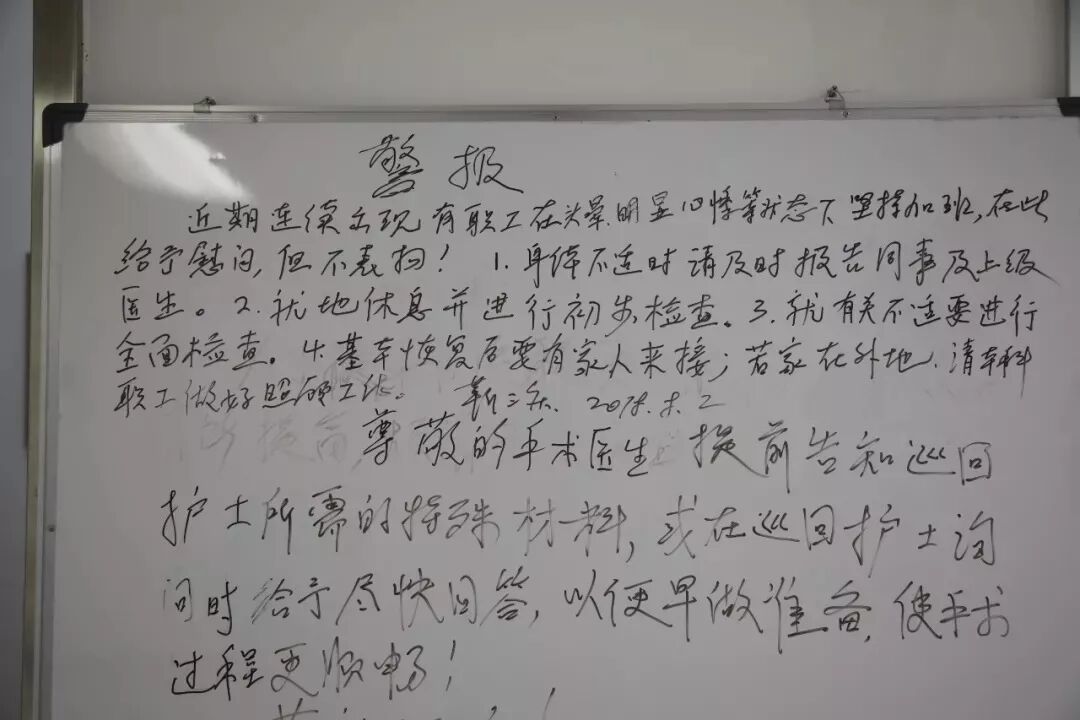 警报
近期连续出现有职工在头晕、明显心悸等状态下坚持加班,在此
给予慰问,但不表扬! 1.身体不适时请及时报告同事及上级
医生。2.就地休息并进行初步检查。3.就有关不适要进行
全面检查。4.基本恢复后要有家人来接;若家在外地、请本科
职工做好照顾工作。
尊敬的手术医生 提前告知巡回
护士所需的特殊材料,或在巡回护士询
问时给予尽快回答,以便早做准备,使手术
过程更顺畅!